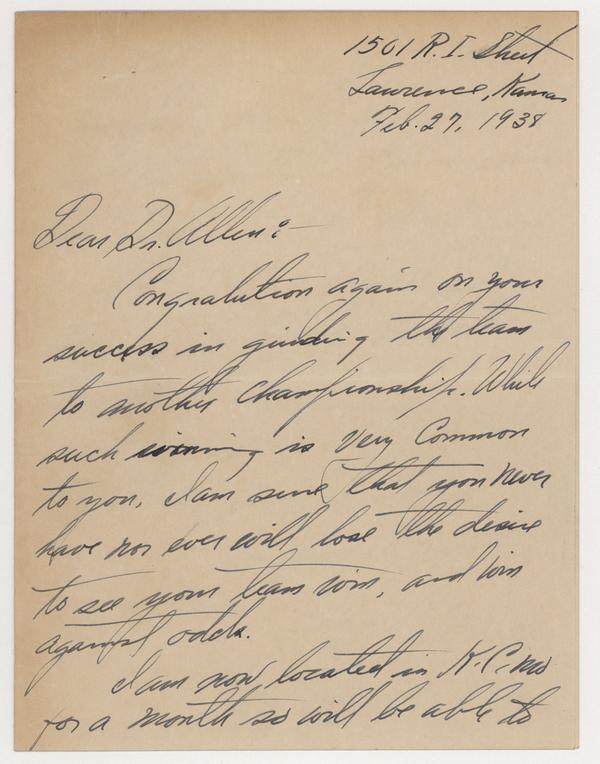 1501 R. I. Street
Lawrence, Kansas
Feb. 27, 1938
Dear Dr. Allen:-
Congralution again on your
success in guiding the team
to another Championship. While
such winning is very Common
to you, I am sure that you never
have nor ever will lose the desire
to see your team win, and win
against odds.
I am now located in K.C. Mo
for a month so will be able to